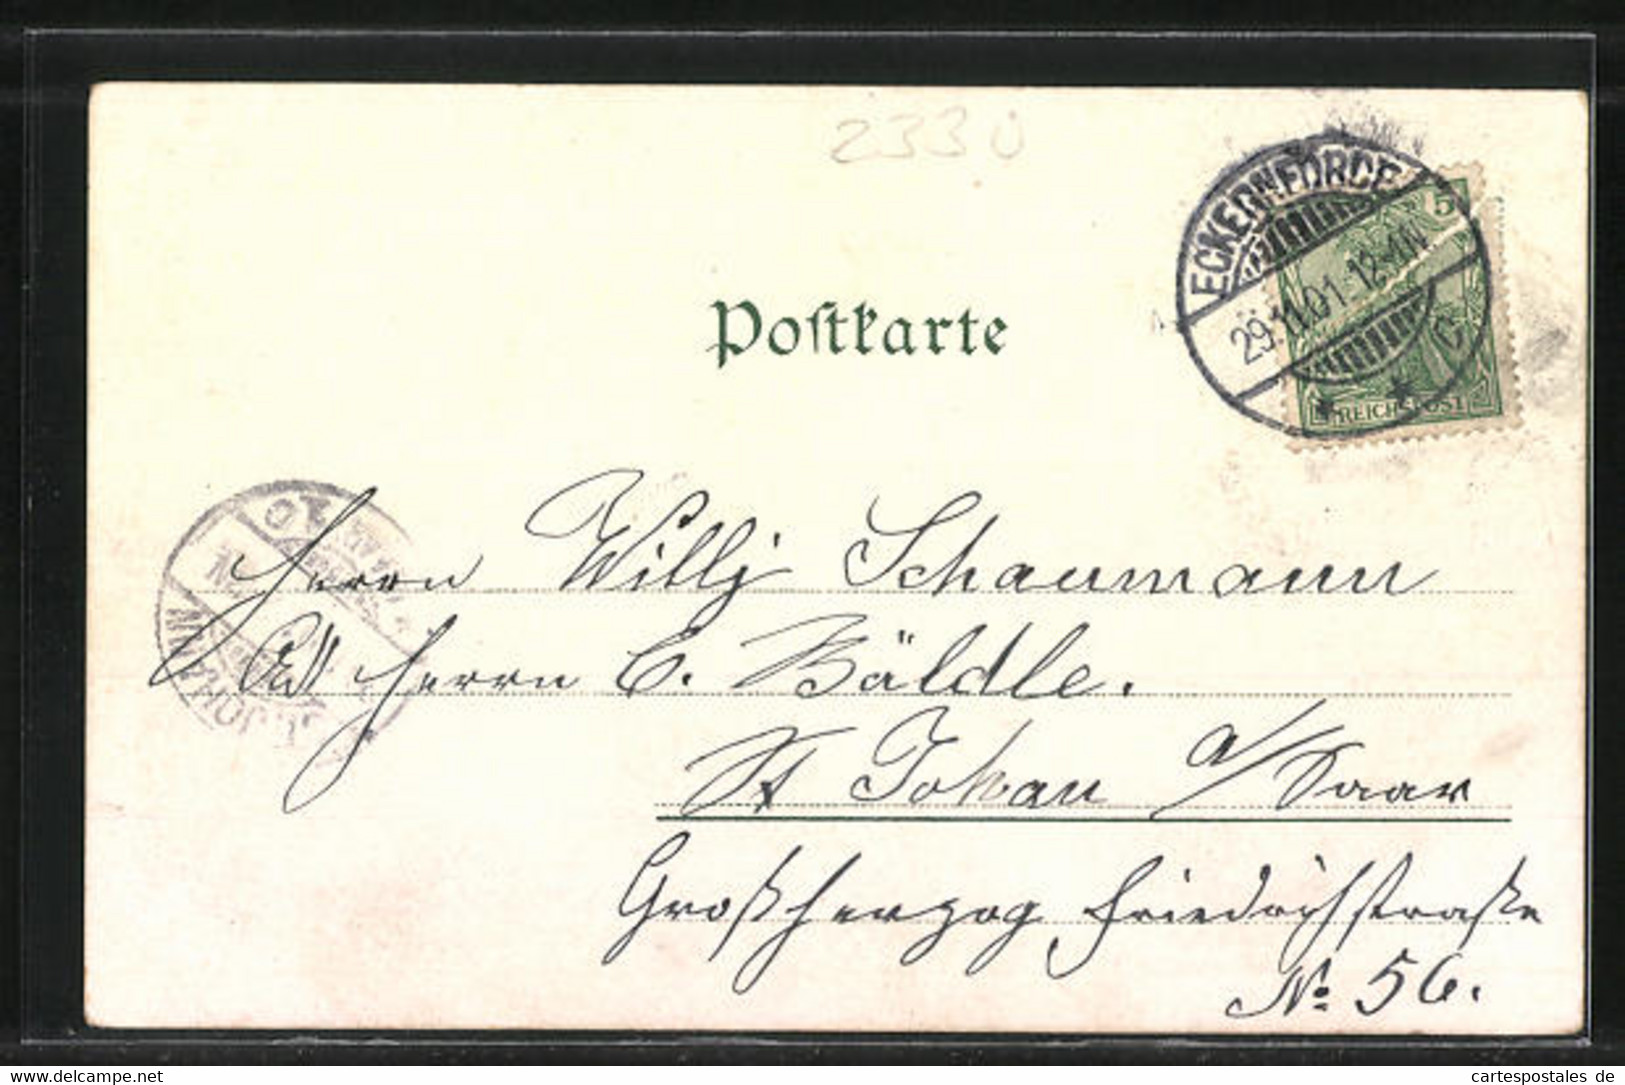 2330
ECKERNFÖRDE
5
29.11.01. 12-1N
C.
REICHSPOST
Postkarte
Herrn Willy Schaumann
Herrn C. Bäldle.
St Johan a/Saar
Großherzog Friedrichstraße
No. 56.
JOHANN
cartespostales de
delcampe.net